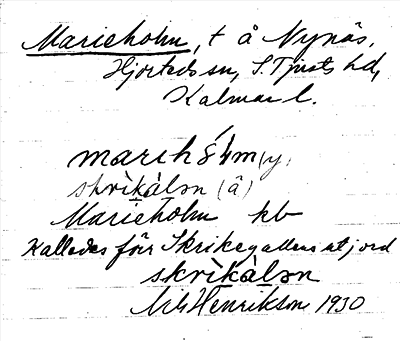 Marieholm, t å Nynäs,
Hjorteds sn, S. Tjusts hd,
Kalmar l.
marihå´lm (y)
skrìkàlən (ä)
Marieholm kb
Kalledes förr Skrikegallens utjord
skrìkàlən
Henrikson 1930